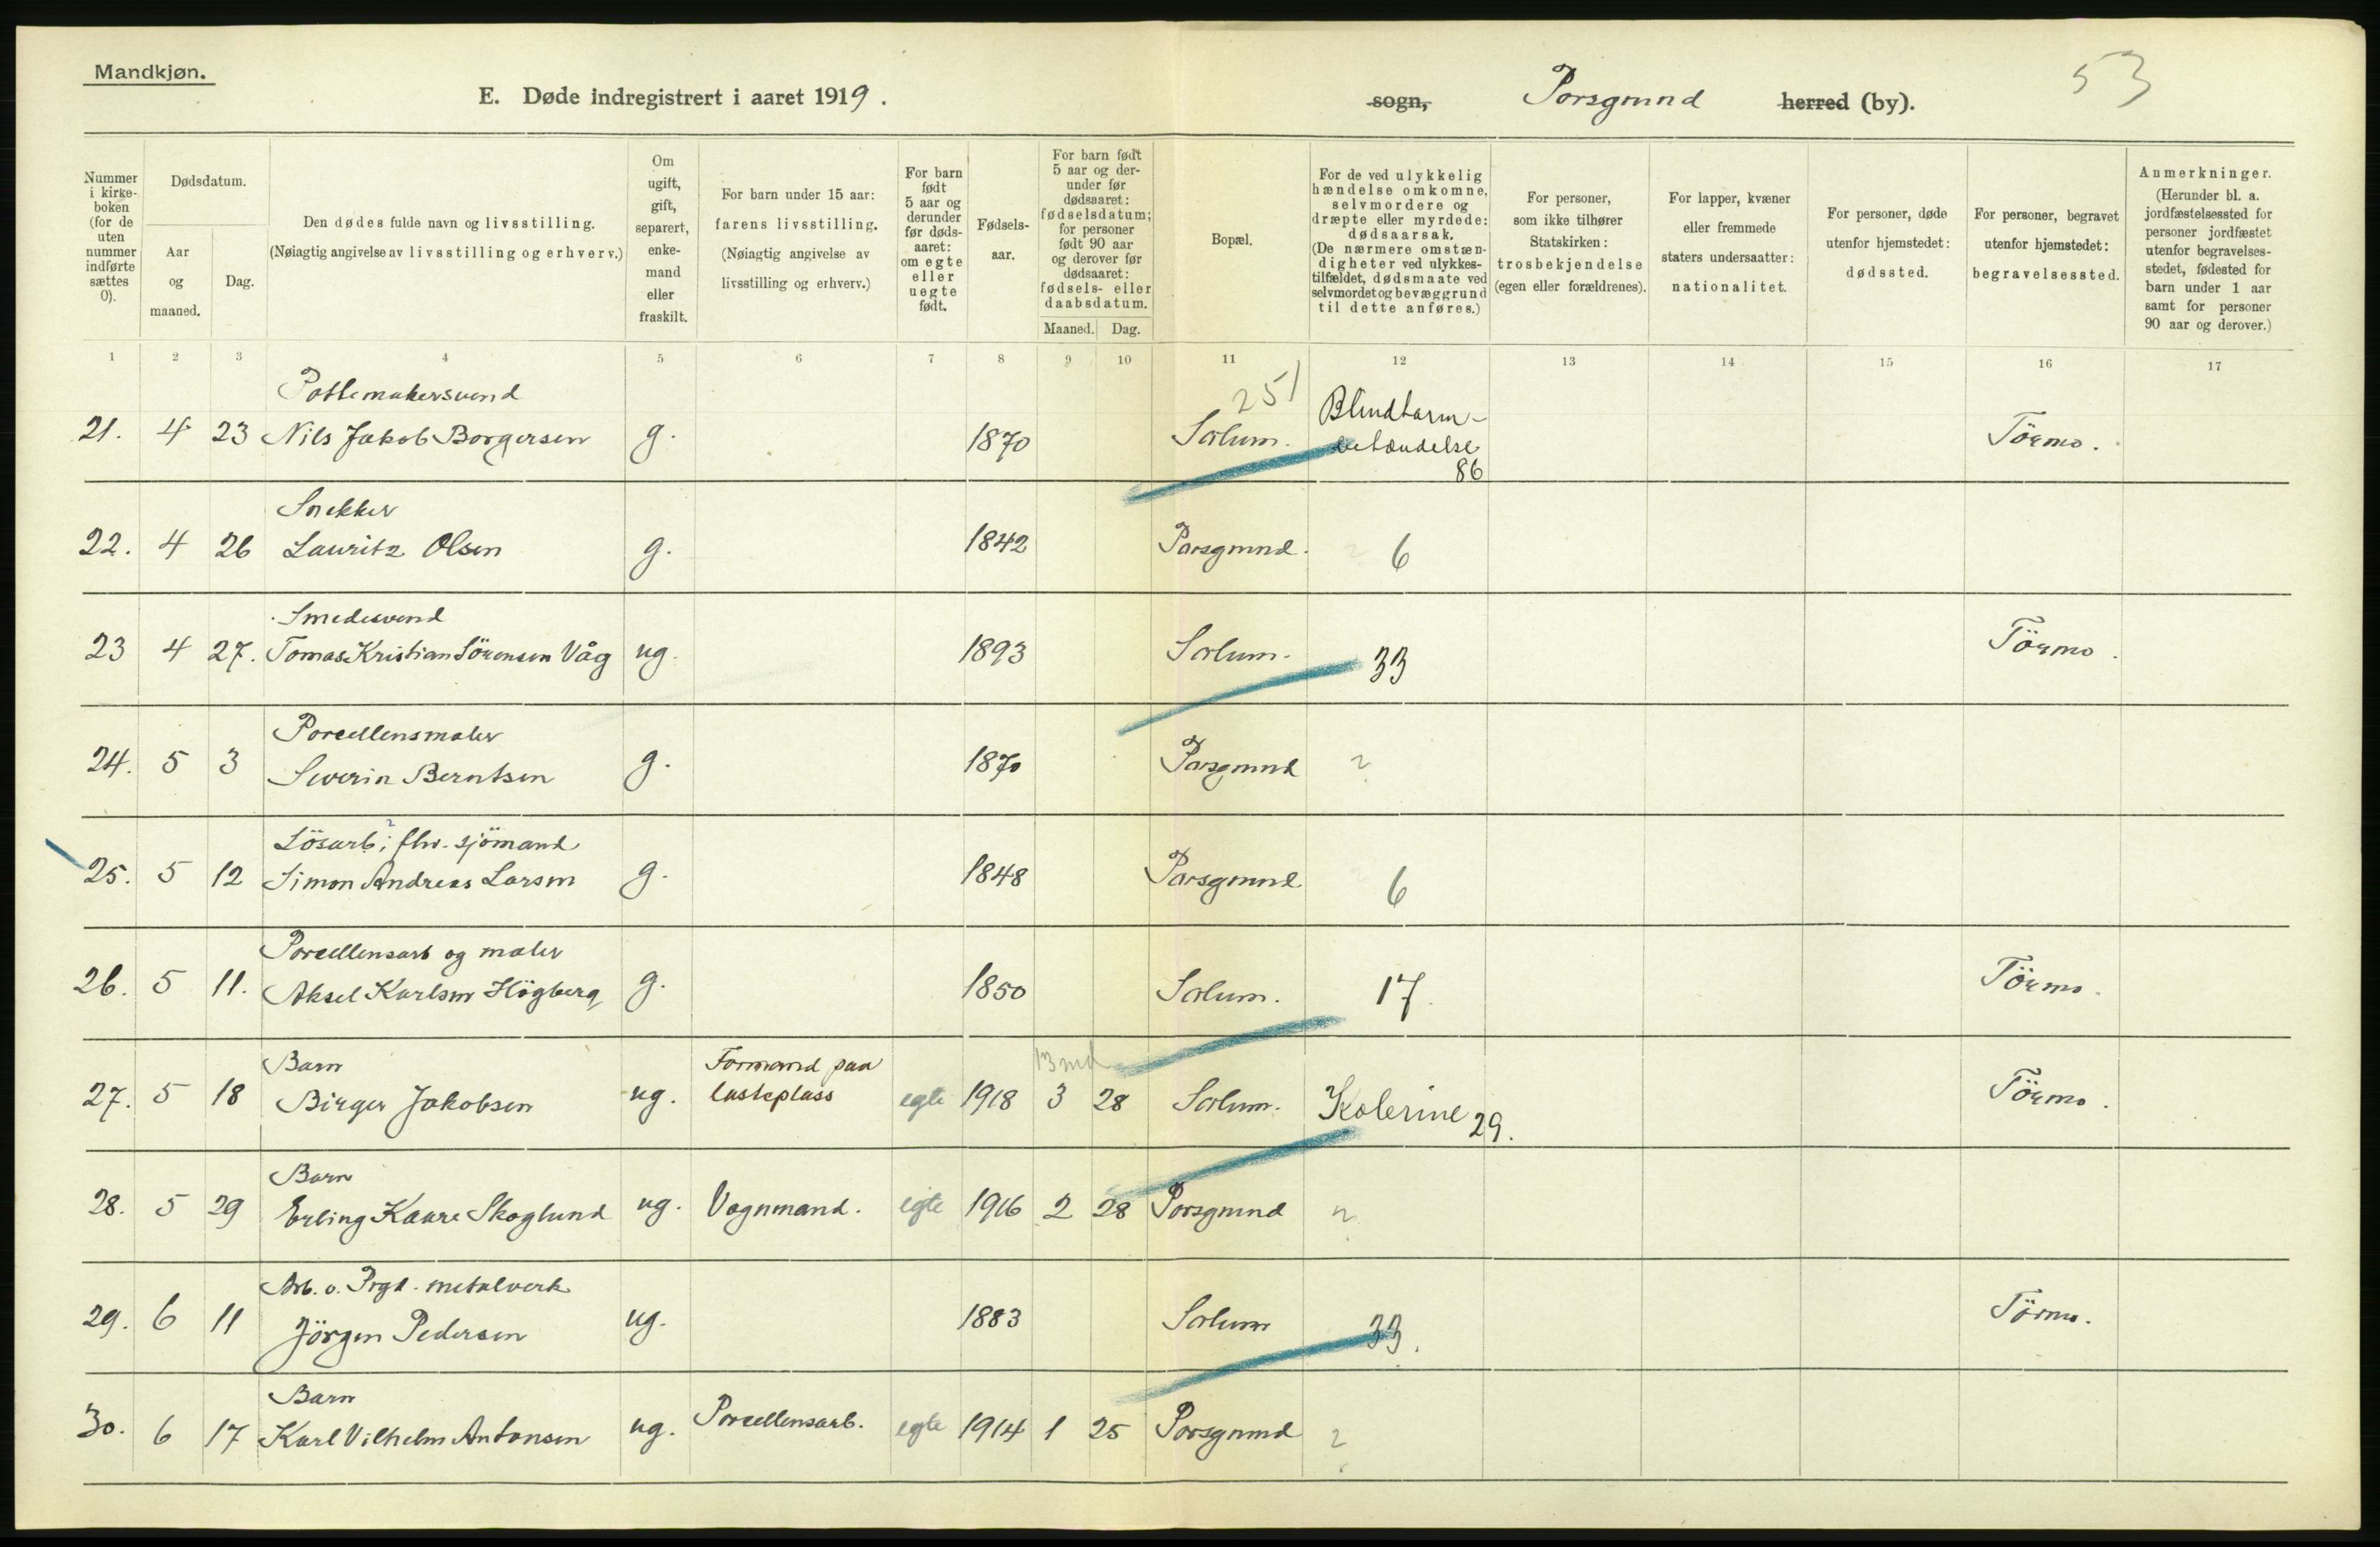 Mandkjøn.
E. Døde indregistrert i aaret 1919.
sogn, Porsgrund herred (by).
53
Nummer i kirkeboken (for de uten nummer indførte sættes 0).
Dødsdatum.
Aar og maaned.
Dag.
Den dødes fulde navn og livsstilling.
(Nøiagtig angivelse av livsstilling og erhverv.)
Om ugift, gift, separert, enkemand eller fraskilt.
For barn under 15 aar: farens livsstilling. (Nøiagtig angivelse av livsstilling og erhverv.)
For barn født 5 aar og derunder før dødsaaret: om egte eller uegte født.
Fødselsaar.
For barn født 5 aar og derunder før dødsaaret: fødselsdatum; for personer født 90 aar og derover før dødsaaret: fødsels- eller daabsdatum.
Maaned. Dag.
Bopæl.
For de ved ulykkelig hændelse omkomne, selvmordere og dræpte eller myrdede: dødsaarsak. (De nærmere omstændigheter ved ulykkestilfældet, dødsmaate ved selvmordet og bevæggrund til dette anføres.)
For personer, som ikke tilhører Statskirken: trosbekjendelse (egen eller forældrenes).
For lapper, kvæner eller fremmede staters undersaatter: nationalitet.
For personer, døde utenfor hjemstedet: dødssted.
For personer, begravet utenfor hjemstedet: begravelsessted.
Anmerkninger. (Herunder bl. a. jordfæstelsessted for personer jordfæstet utenfor begravelsesstedet, fødested for barn under 1 aar samt for personer 90 aar og derover.)
1 2 3 4 5 6 7 8 9 10 11 12 13 14 15 16 17
Pottemakersvend 251 Blindtarm-
21. 4 23 Nils Jakob Borgersen g. 1870 Solum. betændelse Törmo.
86
Snekker
22. 4 26 Lauritz Olsen g. 1842 Porsgrund. 6
Smedesvend
23 4 27. Tomas Kristian Sörensen Våg ug. 1893 Solum. 33 Törmo.
Porcellensmaler
24. 5 3 Severin Berntsen g. 1870 Porsgrund ?
Lösarb; fhv. sjömand
25. 5 12 Simon Andreas Larsen g. 1848 Porsgrund 6
Porcellensarb og maler
26. 5 11. Aksel Karlsen Högberg g. 1850 Solum. 17. Törmo.
Barn Formand paa 13 md
27. 5 18 Birger Jakobsen ug. lasteplass egte 1918 3 28 Solum. Kolerine 29. Törmo.
Barn
28. 5 29 Erling Kaare Skoglund ug. Vognmand. egte 1916 2 28 Porsgrund ?
Arb. v. Prgd. metalverk
29. 6 11 Jörgen Pedersen ug. 1883 Solum 33. Törmo.
Barn
30. 6 17 Karl Vilhelm Antonsen ug. Porcellensarb. egte 1914 1 25 Porsgrund ?